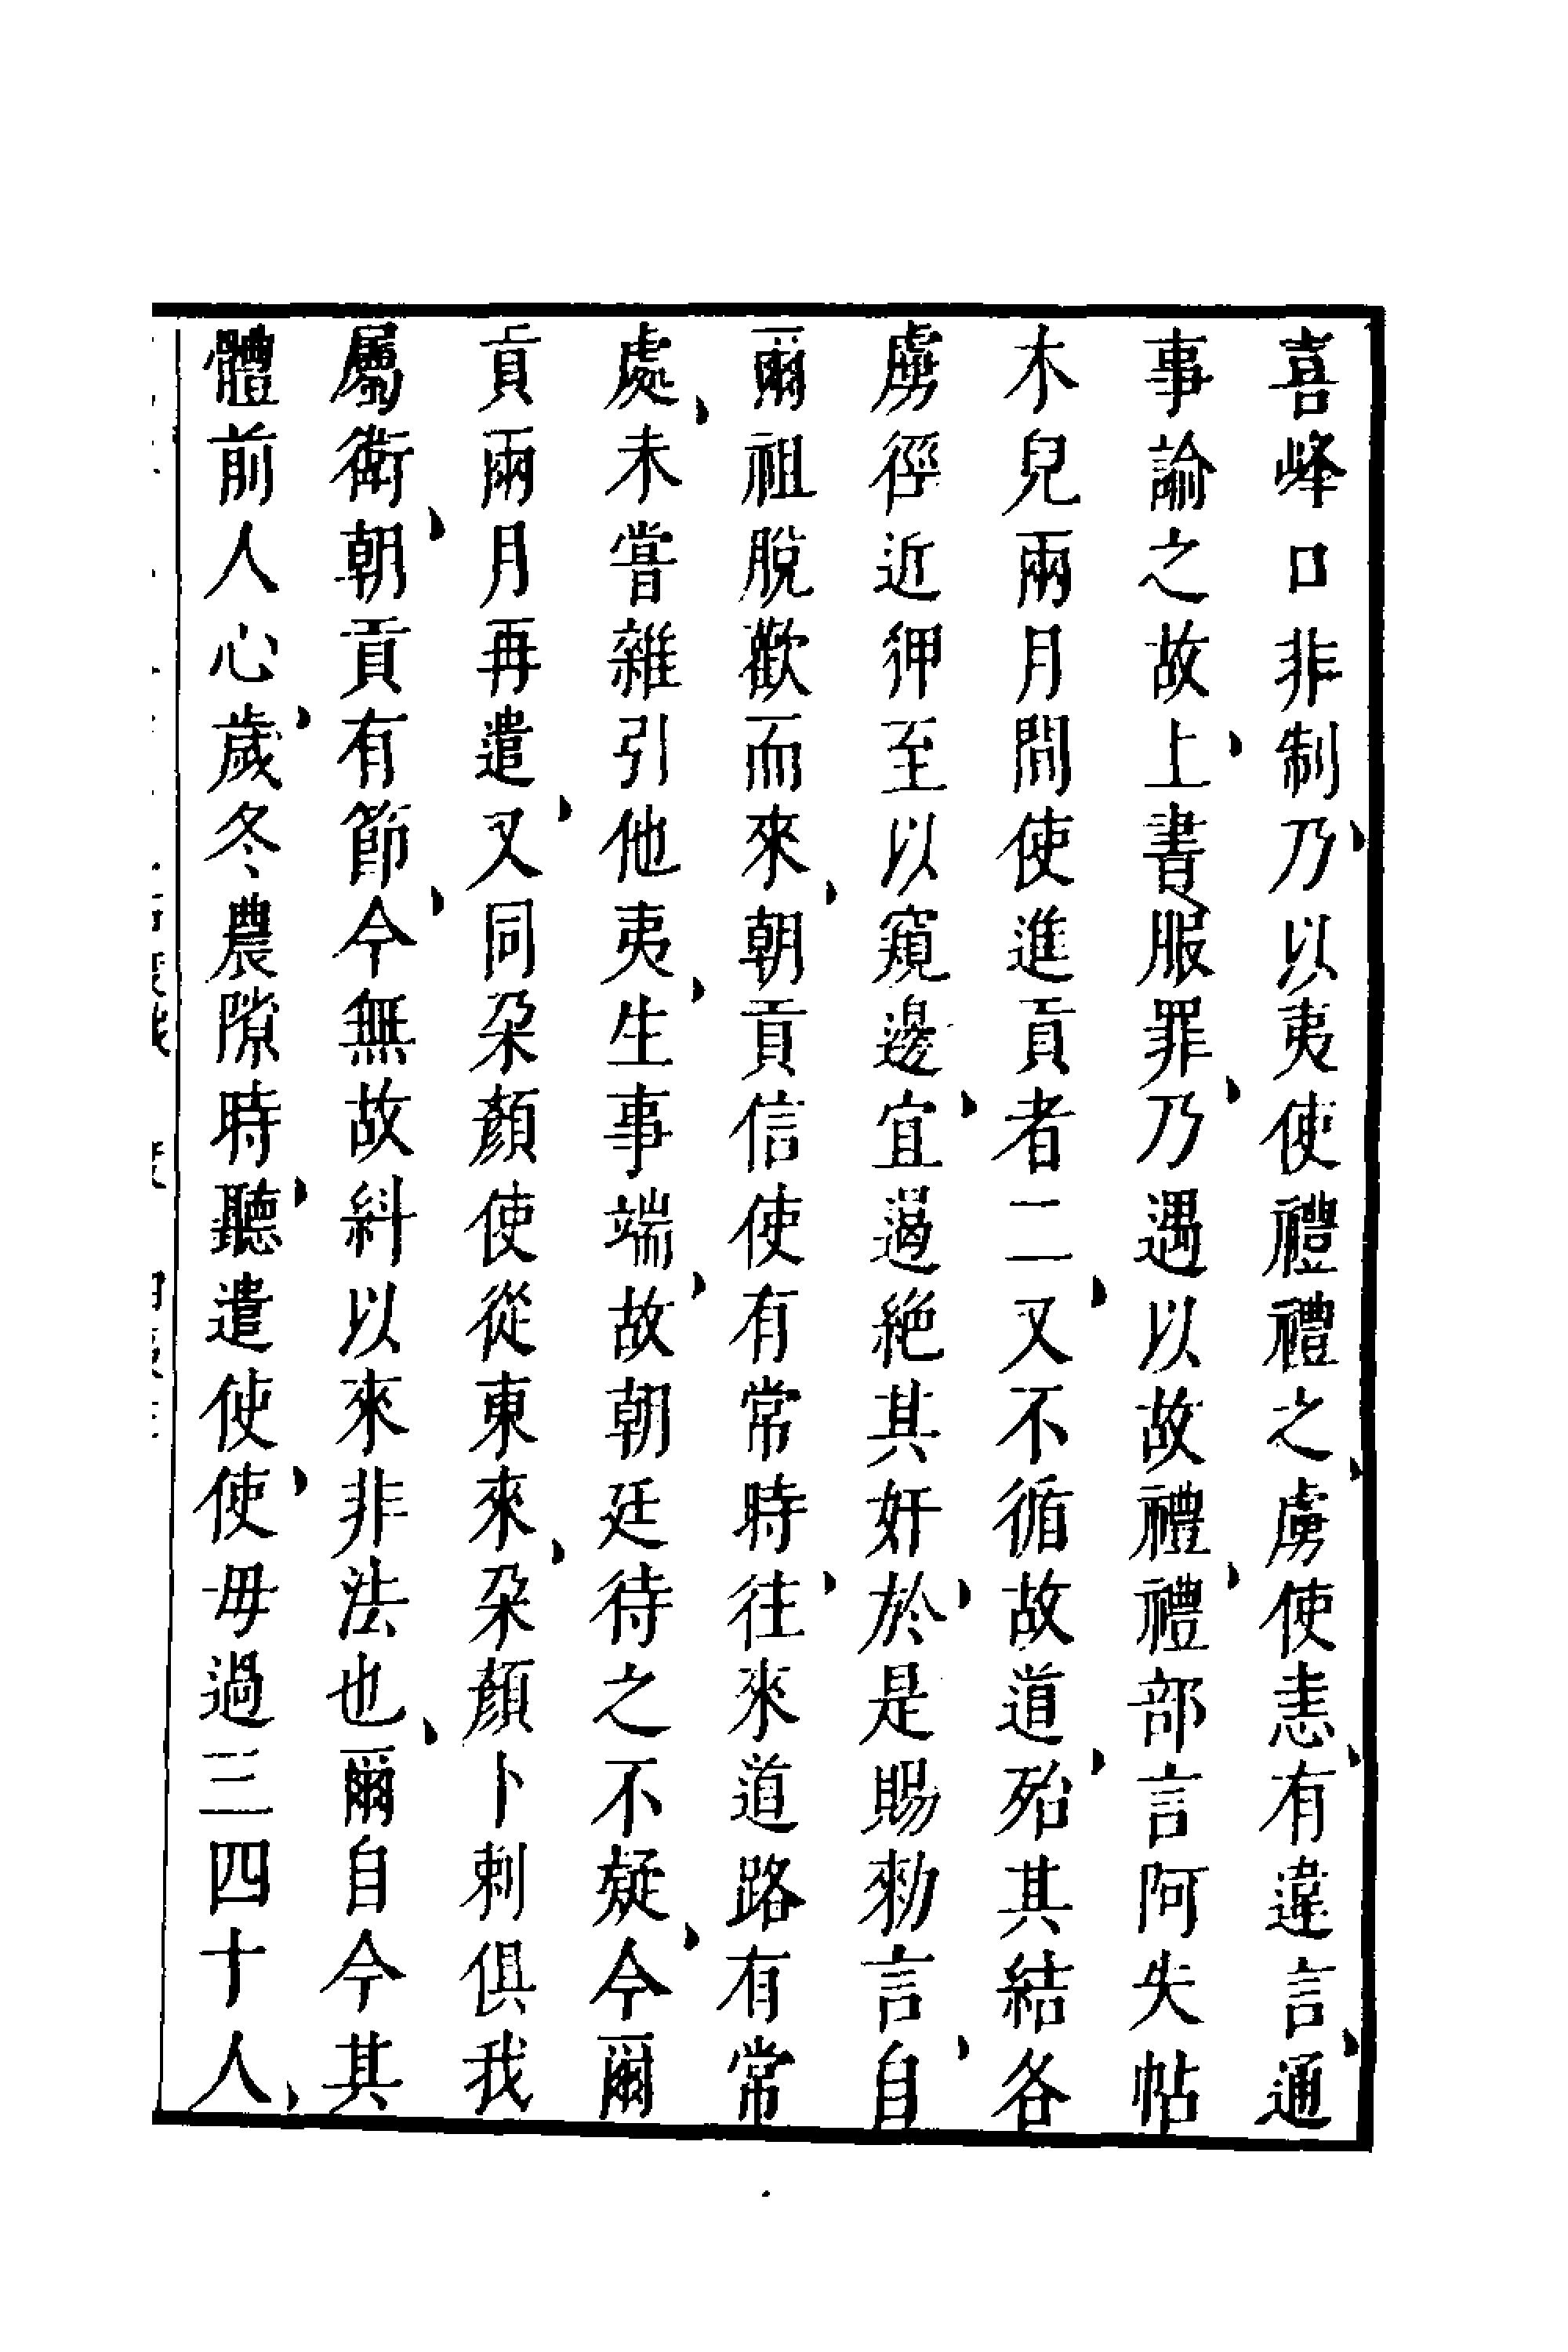 喜峰口非制乃以夷使禮禮之虜使恚有違言通
事諭之故上書服罪乃遇以故禮禮部言阿失帖
木兒兩月間使進貢者二又不循故道殆其結各
虜徑近狎至以窺邊宜遏絶其奸於是賜勑言自
爾祖脫歡而來朝貢信使有常時往來道路有常
處未嘗雜引他夷生事端故朝廷待之不疑今爾
貢兩月再遣又同朶顏使從東來朶顏卜剌俱我
屬衛朝貢有節今無故糾以來非法也爾自今其
體前人心歲冬農隙時聽遣使使毋過三四十人